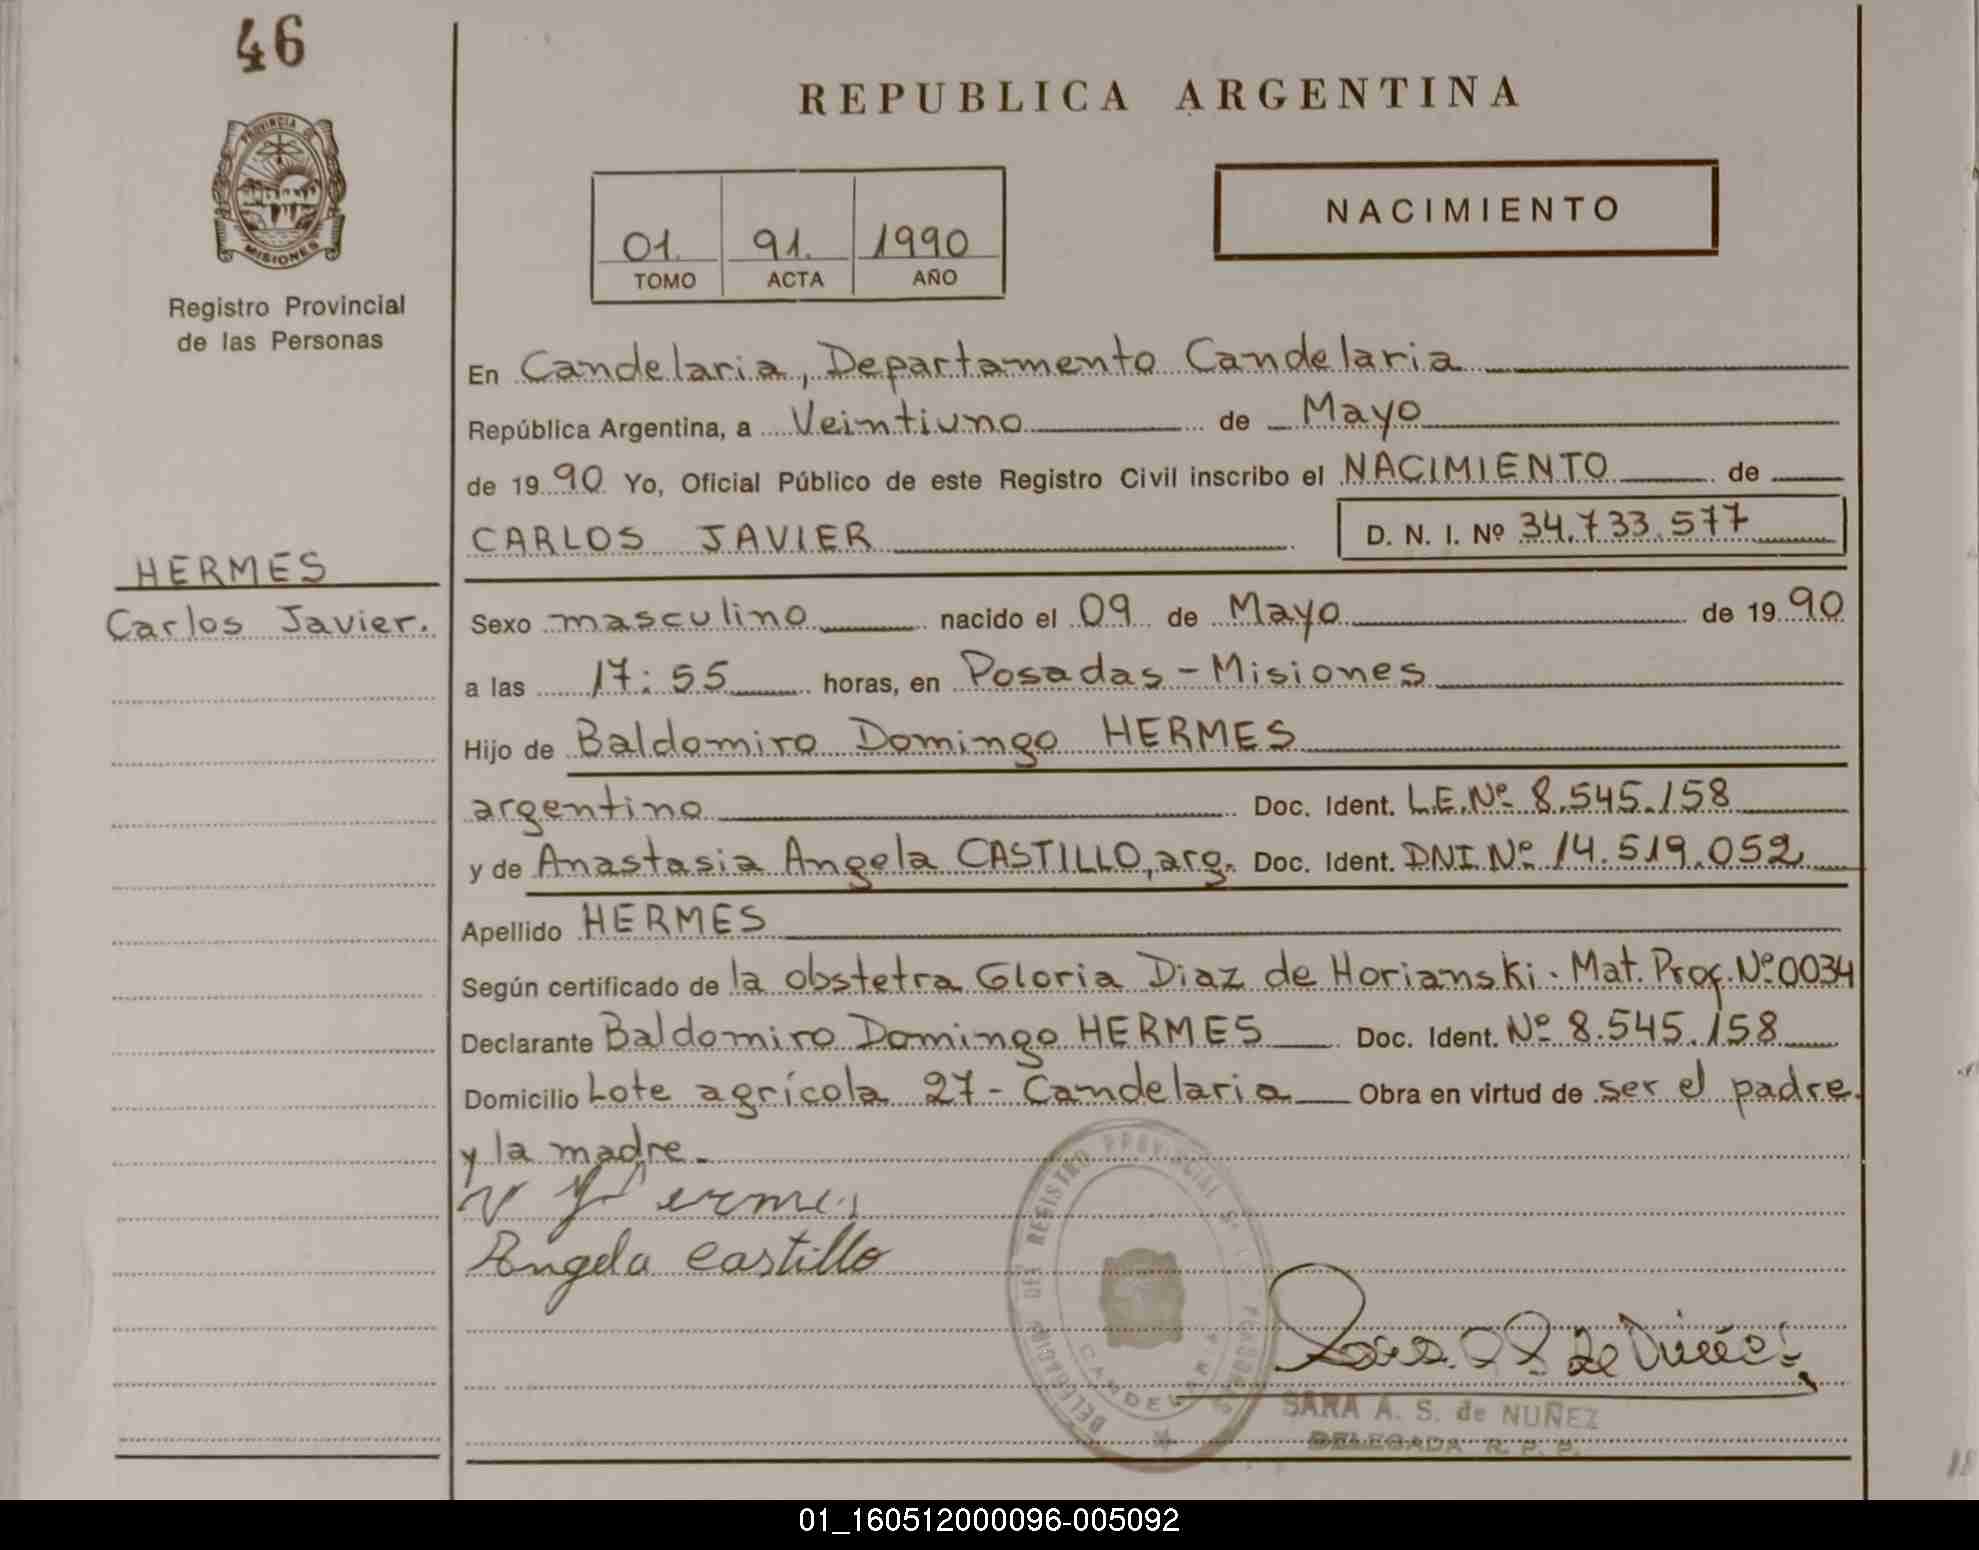 46
PROVINCIA DE
MISIONES
Registro Provincial
de las Personas
HERMES
Carlos Javier.
REPUBLICA ARGENTINA
01. 91. 1990
TOMO ACTA AÑO
NACIMIENTO
En Candelaria, Departamento Candelaria
República Argentina, a Veintiuno de Mayo
de 1990 Yo, Oficial Público de este Registro Civil inscribo el NACIMIENTO de
CARLOS JAVIER D. N. I. Nº 34.733.577
Sexo masculino nacido el 09 de Mayo de 1990
a las 17:55 horas, en Posadas - Misiones
Hijo de Baldomiro Domingo HERMES
argentino Doc. Ident. L.E.Nº 8.545.158
y de Anastasia Angela CASTILLO, arg. Doc. Ident. DNI Nº 14.519.052
Apellido HERMES
Según certificado de la obstetra Gloria Diaz de Horianski. Mat. Prof. Nº 0034
Declarante Baldomiro Domingo HERMES Doc. Ident. Nº 8.545.158
Domicilio Lote agrícola 27 - Candelaria Obra en virtud de ser el padre
y la madre.
Angela Castillo
DELEGACION DEL REGISTRO PROVINCIAL
CANDELARIA
SARA A. S. de NUÑEZ
DELEGADA R. P. P.
01_160512000096-005092